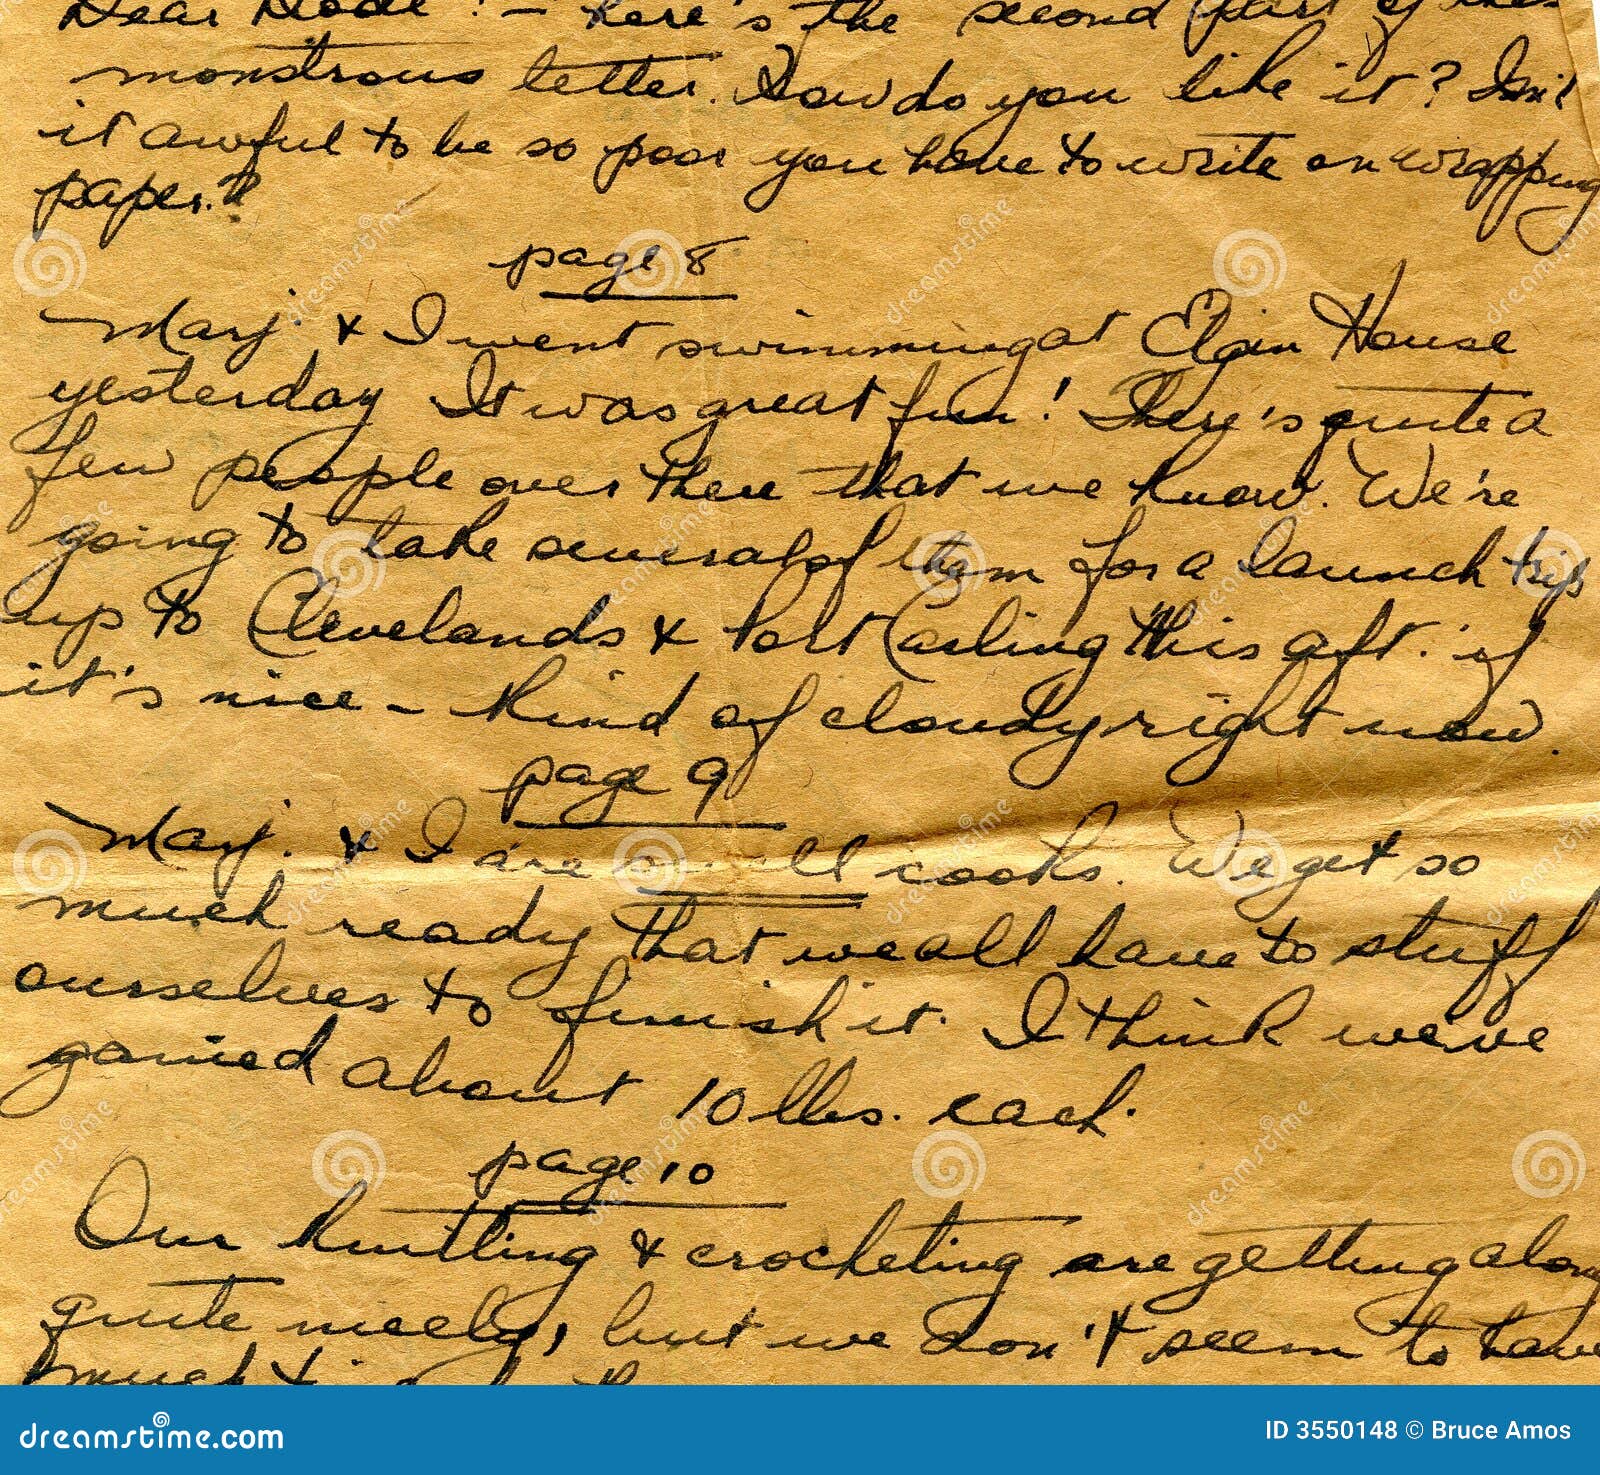 Dear Dode! - here's the second part of this
monstrous letter. How do you like it? Isn't
it awful to be so poor you have to write on wrapping
paper.?
page 8
Marj. & I went swimming at Elgin House
yesterday It was great fun! There's quite a
few people over there that we know. We're
going to take several of them for a launch trip
up to Clevelands & Port Carling this aft. if
it's nice - kind of cloudy right now.
page 9
Marj. & I are swell cooks. We get so
much ready that we all have to stuff
ourselves to finish it. I think we've
gained about 10 lbs. each.
page 10
Our knitting & crocheting are getting along
quite nicely, but we don't seem to have
much
dreamstime.com
ID 3550148 © Bruce Amos